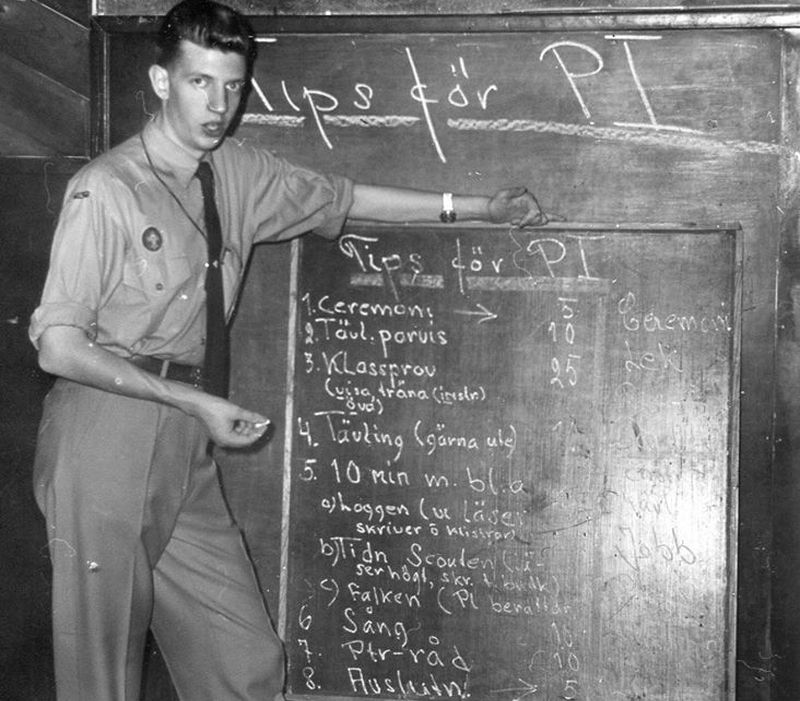 Tips för PI
Tips för PI
1. Ceremoni → 5 Ceremoni
2. Tävl. parvis 10 Lek
3. Klassprov 25
(visa, träna (instr)
öva)
4. Tävling (gärna ute)
5. 10 min m. bl.a
a) Loggen (vi läser
skriver o klistrar)
b) Tidn Scouten (lä-
ser högt, skr. t. butik) Jobb
c) Falken (Pl berättar
6 Sång 10
7. Ptr-råd 10
8. Avslutn. → 5